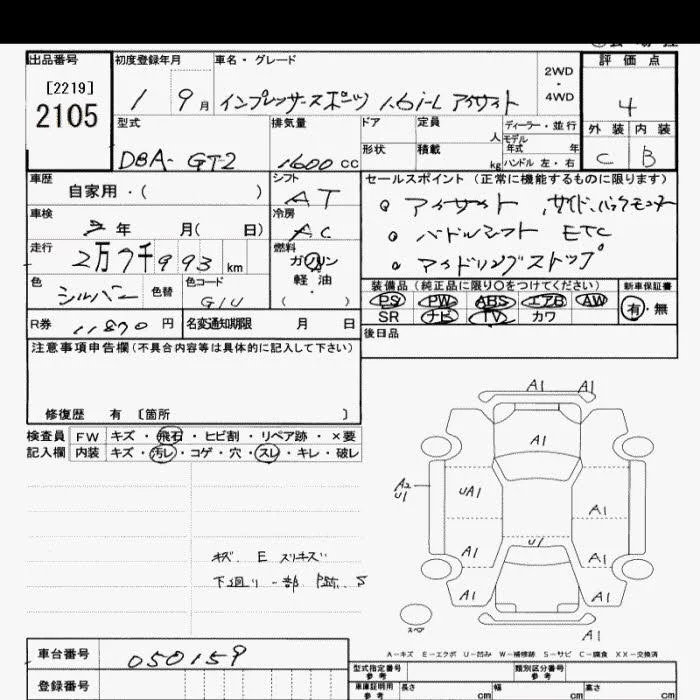 出品番号 初度登録年月 車名・グレード 2WD・4WD 評価点
[2219]
2105
1 9月 インプレッサスポーツ 1.6i-L アイサイト 4
型式 排気量 ドア 定員 人 ディーラー・並行 外装 内装
モデル年式 年
DBA- GT2 1600 CC 形状 積載 kg ハンドル 左・右 C B
車歴 シフト セールスポイント (正常に機能するものに限ります)
自家用・( ) AT
アイサイト サイド、バックモニター
車検 冷房
年 月( 日) AC
パドルシフト ETC
走行 燃料
2万7千993 km ガソリン
アイドリングストップ
軽油
色 色替 色コード ・( )
シルバー G1U
装備品 (純正品に限り○をつけてください) 新車保証書
PS PW ABS エアB AW 有・無
SR ナビ TV カワ
R券 11870 円 名変通知期限 月 日
後日品
注意事項申告欄(不具合内容等は具体的に記入して下さい)
修復歴 有 〔箇所 〕
検査員 FW キズ・飛石・ヒビ割・リペア跡・×要
記入欄 内装 キズ・汚レ・コゲ・穴・スレ・キレ・破レ
A1 A1
A1
A2
U1
UA1
A1
U1
A1 A1
A1 A1
A1
キズ、E スリキズ
下廻り一部 P跡、S
スペア
A-キズ E-エクボ U-凹み W-補修跡 S-サビ C-腐食 XX-交換済
車台番号 050159
登録番号
型式指定番号 参考 類別区分番号 参考
車庫証明用 参考 長さ cm 幅 cm 高さ cm